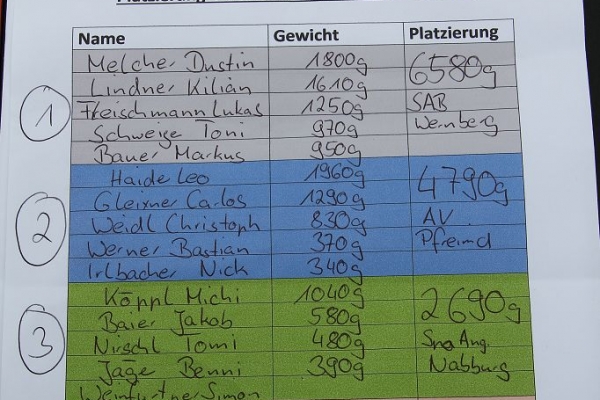 Name Gewicht Platzierung
Melcher Dustin 1800g 6580g
Lindner Kilian 1610g
Fleischmann Lukas 1250g SAB
1
Schweige Toni 970g Wernberg
Bauer Markus 950g
Haide Leo 1960g 4790g
Gleixner Carlos 1290g
2
Weidl Christoph 830g AV
Werner Bastian 370g Pfreimd
Irlbacher Nick 340g
Köppl Michi 1040g 2690g
Baier Jakob 580g
3
Nirschl Tomi 480g Ang.
Jäge Benni 390g Nabburg
Simon